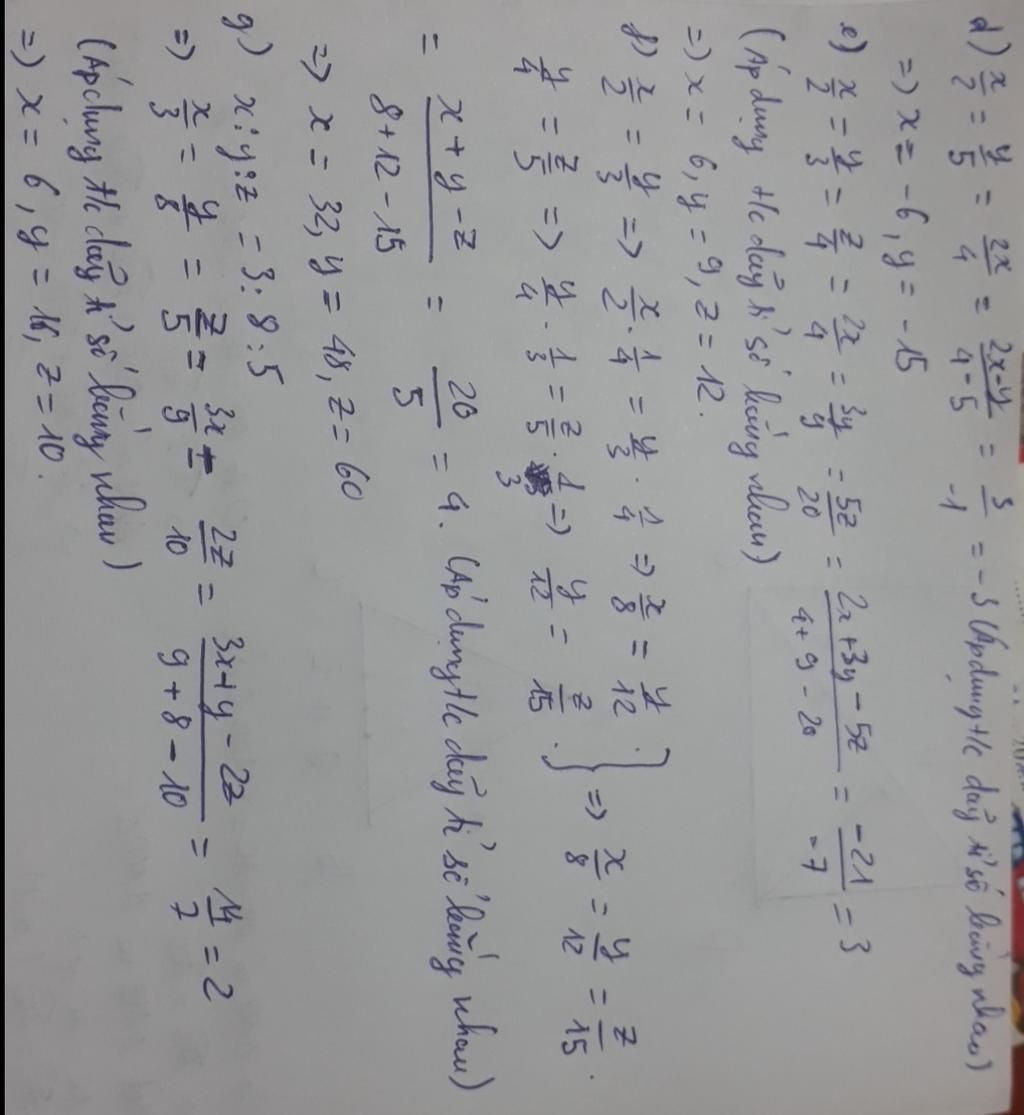 d) x/2 = y/5 = 2x/4 = 2x-y/4-5 = 3/-1 = -3 (Áp dụng t/c dãy tỉ số bằng nhau)
=> x = -6, y = -15
e) x/2 = y/3 = z/4 = 2x/4 = 3y/9 = 5z/20 = 2x+3y-5z/4+9-20 = -21/-7 = 3
(Áp dụng t/c dãy tỉ số bằng nhau)
=> x = 6, y = 9, z = 12.
f) x/2 = y/3 => x/2 . 1/4 = y/3 . 1/4 => x/8 = y/12 . } => x/8 = y/12 = z/15 .
y/4 = z/5 => y/4 . 1/3 = z/5 . 1/3 => y/12 = z/15 .
= x+y-z/8+12-15 = 20/5 = 4. (Áp dụng t/c dãy tỉ số bằng nhau)
=> x = 32, y = 48, z = 60
g) x:y:z = 3:8:5
=> x/3 = y/8 = z/5 = 3x/9 = 2z/10 = 3x+y-2z/9+8-10 = 14/7 = 2
(Áp dụng t/c dãy tỉ số bằng nhau)
=> x = 6, y = 16, z = 10.